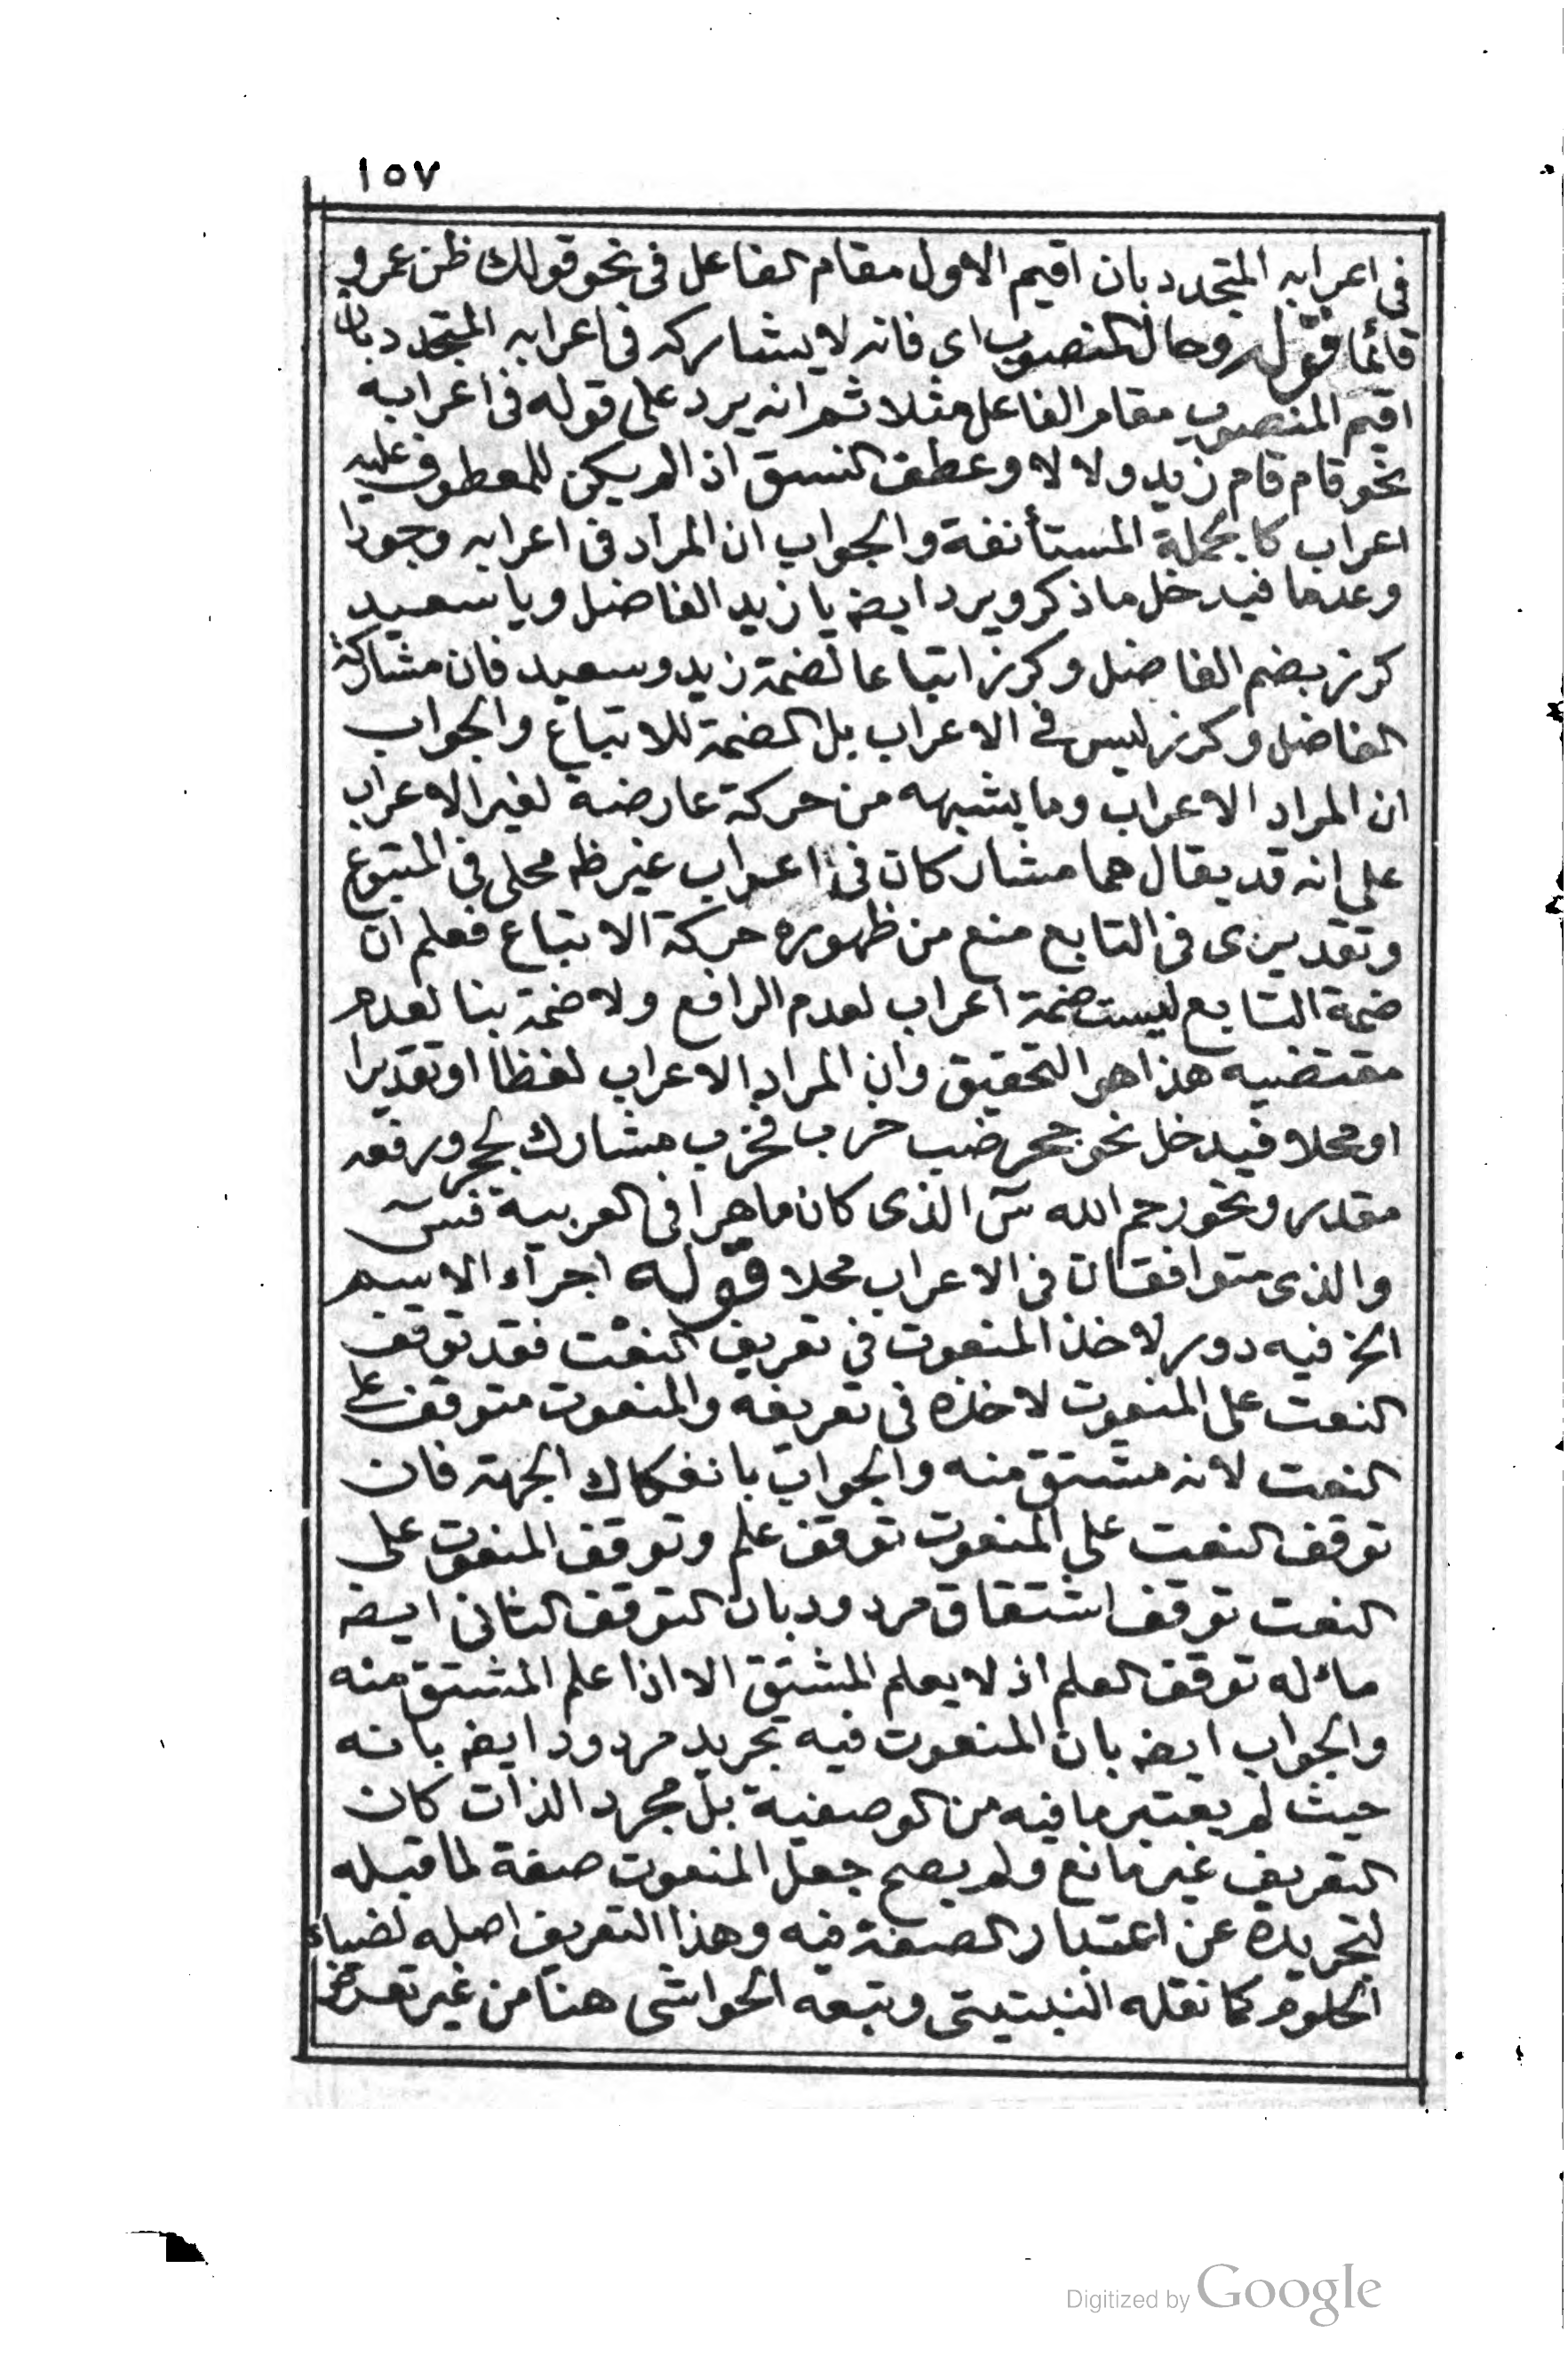 ١٥٧
في اعرابه المتجدد بان اقيم الاول مقام الفاعل في نحو قولك ظن عمرو
قائما قوله وحال المنصوب اى فانه لا يشاركه في اعرابه المتجدد بان
اقيم المنصوب مقام الفاعل مثلا ثم انه يرد على قوله في اعرابه
نحو قام قام زيد ولا لا وعطف النسق اذا لم يكن للمعطوف عليه
اعراب كالجملة المستأنفة والجواب ان المراد في اعرابه وجودا
وعدما فيدخل ما ذكر ويرد ايضه يا زيد الفاضل ويا سعيد
كرز بضم الفاضل وكرز اتباعا لضمة زيد وسعيد فان مشاركة
الفاضل وكرز ليس في الاعراب بل الضمة للاتباع والجواب
ان المراد الاعراب وما يشبهه من حركة عارضة لغير الاعراب
على انه قد يقال هما مشاركان في اعراب غير ظه محلى في المتبوع
وتقديرى في التابع منع من ظهوره حركة الاتباع فعلم ان
ضمة التابع ليست ضمة اعراب لعدم الرافع ولا ضمة بنا لعدم
مقتضيه هذا هو التحقيق وان المراد الاعراب لفظا او تقديرا
او محلا فيدخل نحو جحر ضب خرب فخرب مشارك لجحر ورفعه
مقدر ونحو رحم الله سٓ الذى كان ماهرا في العربية فسٓ
والذى متوافقان في الاعراب محلا قوله اجرآء الاسم
الخ فيه دور لاخذ المنعوت في تعريف النعت فقد توقف
النعت على المنعوت لاخذه في تعريفه والمنعوت متوقف على
النعت لانه مشتق منه والجواب بانفكاك الجهة فان
توقف النعت على المنعوت توقف علم وتوقف المنعوت على
النعت توقف اشتقاق مردود بان التوقف الثانى ايضه
مأله توقف العلم اذ لا يعلم المشتق الا اذا علم المشتق منه
والجواب ايضه بان المنعوت فيه تجريد مردود ايضه بانه
حيث لم يعتبر ما فيه من الوصفية بل مجرد الذات كان
التعريف غير مانع ولم يصح جعل المنعوت صفة لما قبله
لتجريده عن اعتبار الصفة فيه وهذا التعريف اصله لضياء
الحلوم كما نقله النبتيتى وتبعه الحواشى هنا من غير تعرض
Digitized by Google